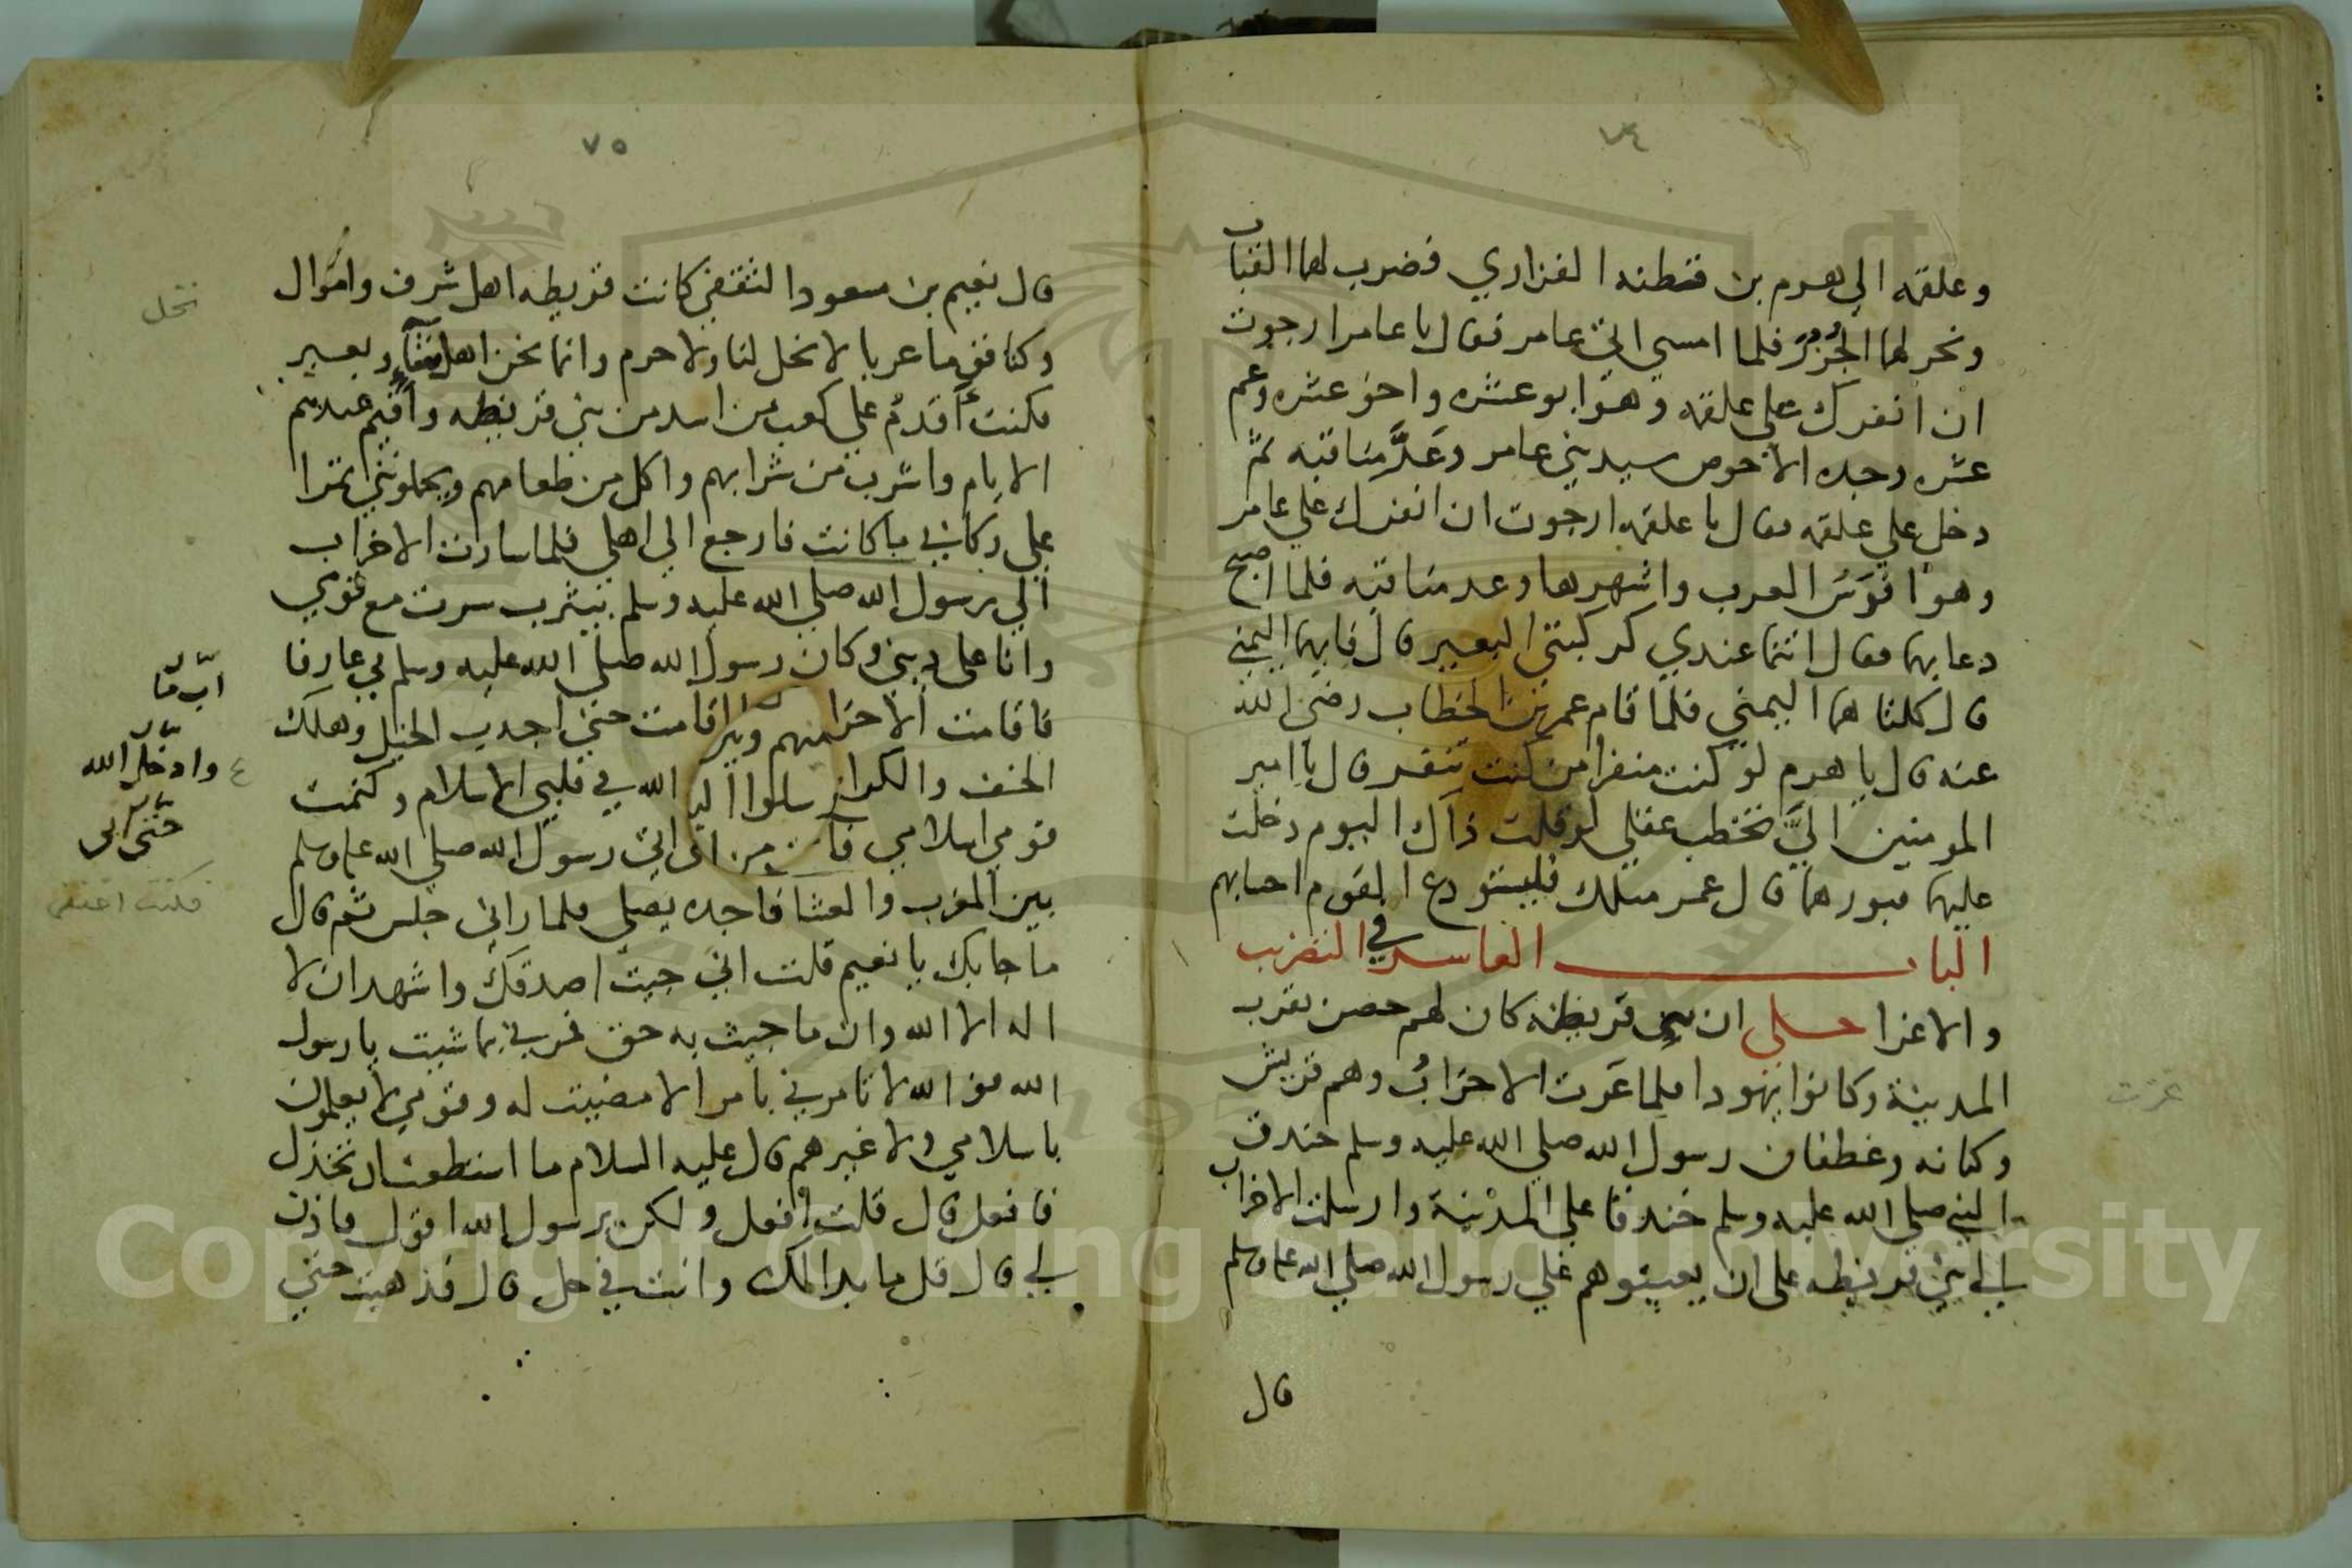 ٧٤
وعلقه الي هرم بن قطنه الفزاري فضرب لهما القباب
ونحر لهما الجُزُرَ فلما امسي اتي عامر فقال يا عامر ارجوت
ان انفرك علي علقه وهو ابو عشره واخو عشره وعم
عشره وجده الاحوص سيد بني عامر وعَدَّ مناقبه ثم
دخل علي علقه فقال يا علقه ارجوت ان انفرك علي عامر
وهو افرَسُ العرب واشهرها وعد مناقبه فلما اصبح
دعا بهما فقال انتما عندي كركبتي البعير قال فايهما اليمني
قال كلتاهما اليمني فلما قام عمر بن الخطاب رضي الله
عنه قال يا هرم لو كنت منفرا من كنت تنفر قال يا امير
المومنين اليَّ تخطب عقلي لو قلت ذاك اليوم دخلت
عليهما قبورهما قال عمر مثلك فليستودع القوم احسابهم
الباب العاشر في التضريب
والاغرا حكي ان بني قريظه كان لهم حصن بقرب
المدينة وكانوا يهودا فلما غزت الاحزابُ وهم قريش
وكنانه وغطفان رسول الله صلي الله عليه وسلم خندق
النبي صلي الله عليه وسلم خندقا علي المدينة وارسلت الاحزاب
الي بني قريظه علي ان يعينوهم علي رسول الله صلي الله عليه وسلم
قال
غزت
٧٥
قال نعيم بن مسعود الثقفي كانت قريظه اهل شرف واموال
وكنا قوما عربا لا نخل لنا ولا حرم وانما نحن اهل شاء وبعير
فكنت أقدمُ علي كعب بن اسد من بني قريظه واقيم عندهم
الايام واشرب من شرابهم واكل من طعامهم ويحملونني تمرا
علي ركابي ما كانت فارجع الي اهلي فلما سارت الاحزاب
الي رسول الله صلي الله عليه وسلم بيثرب سرت مع قومي
وانا علي ديني وكان رسول الله صلي الله عليه وسلم بي عارفا
فاقامت الاحزاب اقامت حتي اجدب الخيل وهلك
الخف والكراع الله في قلبي الاسلام وكتمت
قومي اسلامي اتي رسول الله صلي الله عليه وسلم
بين المغرب والعشا فاجده يصلي فلما راني جلس ثم قال
ما جا بك يا نعيم قلت اني جيت اصدقك واشهد ان لا
اله الا الله وان ما جيت به حق فمرني بما شيت يا رسول
الله فوالله لا تامرني بامر الا مضيت له وقومي لا يعلمون
باسلامي ولا غيرهم قال عليه السلام ما استطعت ان تخذل
فافعل قال قلت افعل ولكن يرسول الله اقول فاذن
لي قال قل ما بدا لك وانت في حل قال فذهبت حتي
نخل
وادخل الله
حتي اتي
فكنت